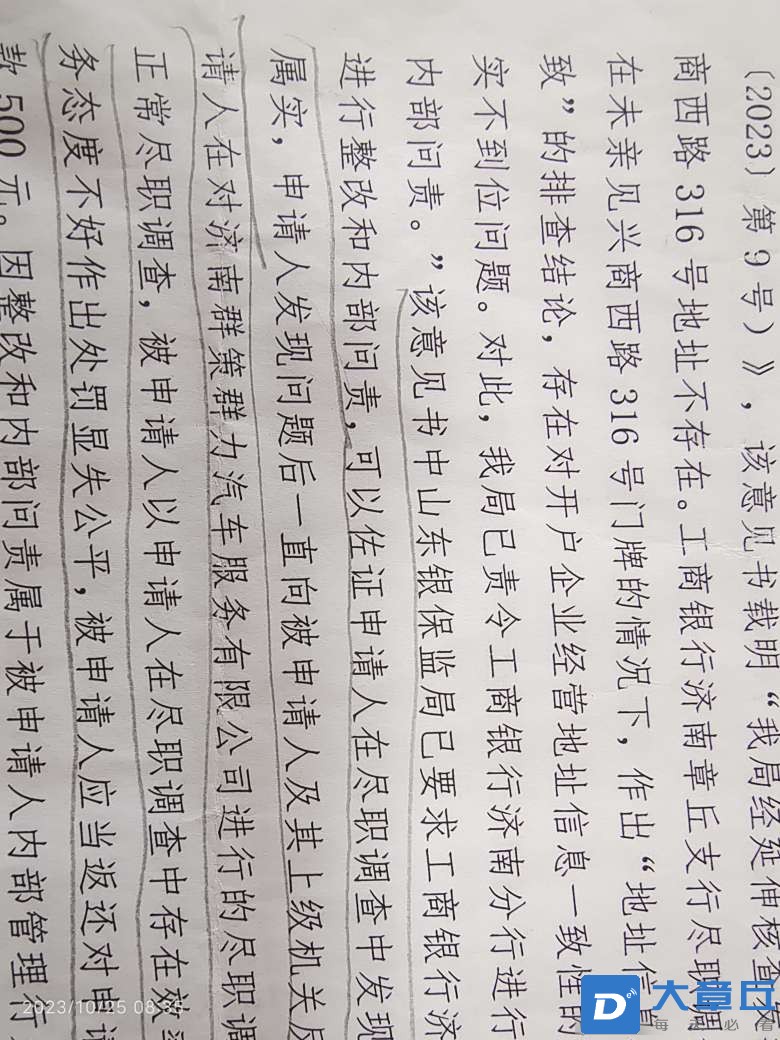 (2023) 第 9 号) 》, 该意见书载明 “我局经延伸核查发
商西路 316 号地址不存在。工商银行济南章丘支行尽职调
在未亲见兴商西路 316 号门牌的情况下, 作出 “地址信息
致” 的排查结论, 存在对开户企业经营地址信息一致性的
实不到位问题。对此, 我局已责令工商银行济南分行进行
内部问责。” 该意见书中山东银保监局已要求工商银行济
进行整改和内部问责, 可以佐证申请人在尽职调查中发现
属实, 申请人发现问题后一直向被申请人及其上级机关反
请人在对济南群策群力汽车服务有限公司进行的尽职调
正常尽职调查, 被申请人以申请人在尽职调查中存在效率
务态度不好作出处罚显失公平, 被申请人应当返还对申请
款 500 元。因整改和内部问责属于被申请人内部管理行
2023/10/25 08:35
D
大章丘
每 必 看